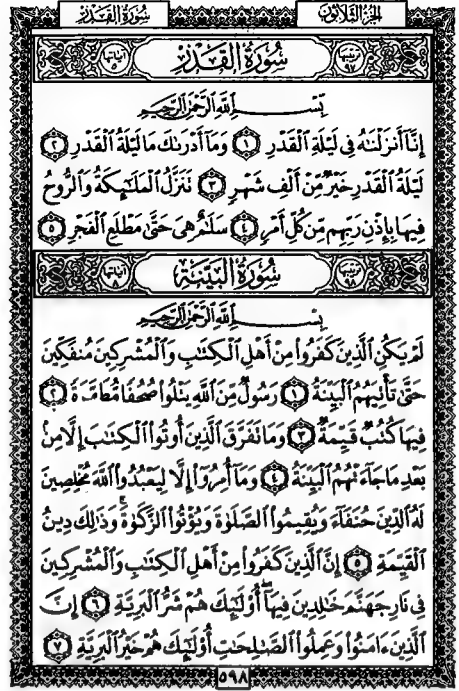 الجزء الثلاثون سورة القدر
ترتيبها ٩٧ سورة القدر آياتها ٥
بسم الله الرحمن الرحيم
إِنَّا أَنزَلْنَـٰهُ فِى لَيْلَةِ ٱلْقَدْرِ ١ وَمَآ أَدْرَىٰكَ مَا لَيْلَةُ ٱلْقَدْرِ ٢
لَيْلَةُ ٱلْقَدْرِ خَيْرٌ مِّنْ أَلْفِ شَهْرٍ ٣ تَنَزَّلُ ٱلْمَلَـٰٓئِكَةُ وَٱلرُّوحُ
فِيهَا بِإِذْنِ رَبِّهِم مِّن كُلِّ أَمْرٍ ٤ سَلَـٰمٌ هِىَ حَتَّىٰ مَطْلَعِ ٱلْفَجْرِ ٥
ترتيبها ٩٨ سورة البينة آياتها ٨
بسم الله الرحمن الرحيم
لَمْ يَكُنِ ٱلَّذِينَ كَفَرُوا۟ مِنْ أَهْلِ ٱلْكِتَـٰبِ وَٱلْمُشْرِكِينَ مُنفَكِّينَ
حَتَّىٰ تَأْتِيَهُمُ ٱلْبَيِّنَةُ ١ رَسُولٌ مِّنَ ٱللَّهِ يَتْلُوا۟ صُحُفًا مُّطَهَّرَةً ٢
فِيهَا كُتُبٌ قَيِّمَةٌ ٣ وَمَا تَفَرَّقَ ٱلَّذِينَ أُوتُوا۟ ٱلْكِتَـٰبَ إِلَّا مِنۢ
بَعْدِ مَا جَآءَتْهُمُ ٱلْبَيِّنَةُ ٤ وَمَآ أُمِرُوٓا۟ إِلَّا لِيَعْبُدُوا۟ ٱللَّهَ مُخْلِصِينَ
لَهُ ٱلدِّينَ حُنَفَآءَ وَيُقِيمُوا۟ ٱلصَّلَوٰةَ وَيُؤْتُوا۟ ٱلزَّكَوٰةَ ۚ وَذَٰلِكَ دِينُ
ٱلْقَيِّمَةِ ٥ إِنَّ ٱلَّذِينَ كَفَرُوا۟ مِنْ أَهْلِ ٱلْكِتَـٰبِ وَٱلْمُشْرِكِينَ
فِى نَارِ جَهَنَّمَ خَـٰلِدِينَ فِيهَآ ۚ أُو۟لَـٰٓئِكَ هُمْ شَرُّ ٱلْبَرِيَّةِ ٦ إِنَّ
ٱلَّذِينَ ءَامَنُوا۟ وَعَمِلُوا۟ ٱلصَّـٰلِحَـٰتِ أُو۟لَـٰٓئِكَ هُمْ خَيْرُ ٱلْبَرِيَّةِ ٧
٥٩٨